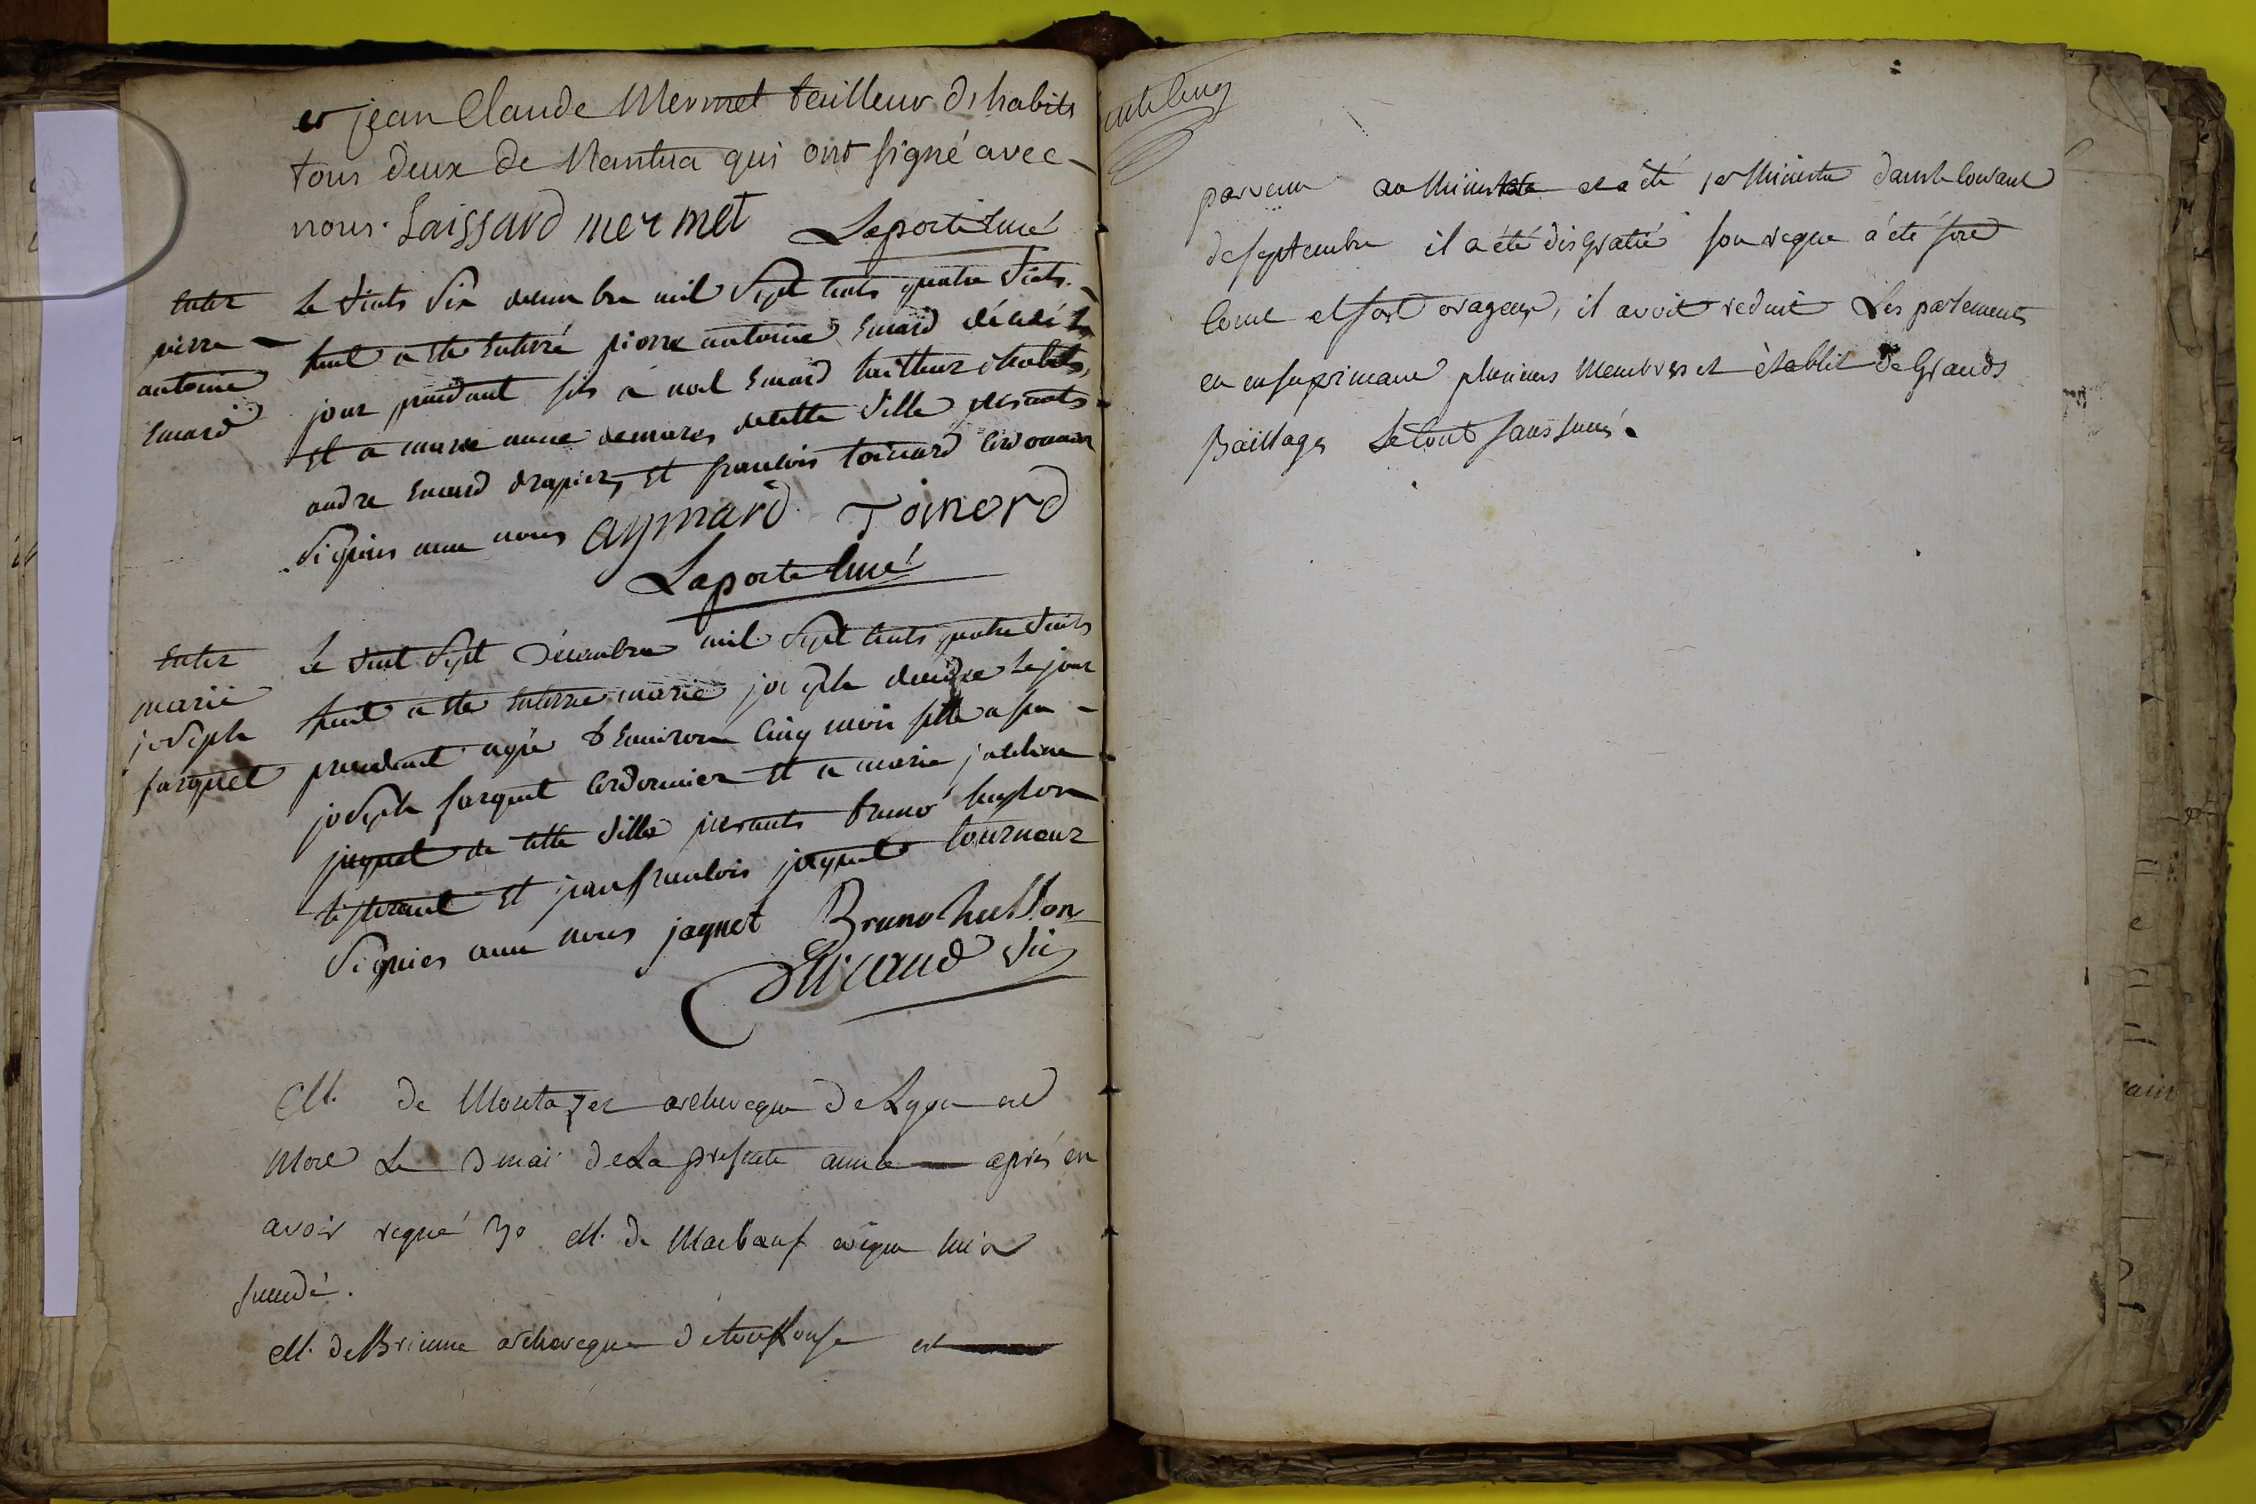 et jean Claude Mermet tailleur d'habits
tous deux de Nantua qui ont signé avec
nous. Laissard mermet Laporte Curé
Enter
pierre
antoine
Emard
Le vints six decembre mil sept cents quatre vints
huit a ete enterré pierre antoine Emard décédé le
jour precedant fils a noel Emard tailleur d'habits
et a marie anne demares de cette ville presents
andre Emard drapier, et francois toinard cordonnier
signies avec nous aymard Toinard
Laporte Curé
Enter
marie
joseph
farquet
Le vint sept décembre mil sept cents quatre vints
huit a ete enterree marie joseph decedee le jour
precedent agée d'environ cinq mois fille a feu
joseph farquet cordonnier et a marie joseline
juquet de cette ville presents bruno hugon
tisserant et jean francois jaquet tourneur
signies avec nous jaquet Bruno hullon
Evicaud vic
M. de Montazet archeveque de Lyon est
Mort Le 3 mai de La presente année après en
avoir regné 30 M. de Marboeuf eveque lui a
succedé.
M. de Brienne archeveque de toulouse est
parvenu au Ministere et a été 1er Ministre dans le courant
de septembre il a été disgratié son regne a été fort
court et fort orageux, il avoit reduit Les parlements
en en suprimant plusieurs Membres et établit de Grands
Baillages Le tout sans succés.